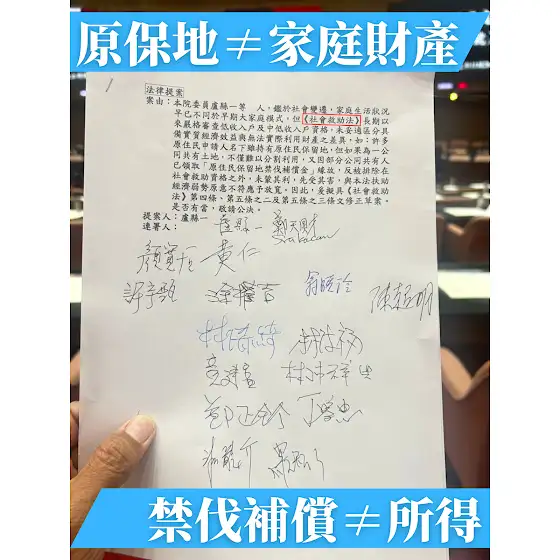 原保地≠家庭財產
法律提案
案由：本院委員盧縣一等　人，鑑於社會變遷，家庭生活狀況
早已不同於早期大家庭模式，但《社會救助法》長期以
來嚴格審查低收入戶及中低收入戶資格，未妥適區分具
備實質經濟效益與無法實際利用財產之差異，如：許多
原住民申請人名下雖持有原住民保留地，但如果為一公
同共有土地，不僅難以分割利用，又因部分公同共有人
已領取「原住民保留地禁伐補償金」緣故，反被排除在
社會救助資格之外，未蒙其利，先受其害，與本法扶助
經濟弱勢原意不符應予放寬。因此，爰擬具《社會救助
法》第四條、第五條之二及第五條之三條文修正草案。
是否有當，敬請公決。
提案人：盧縣一
連署人：
盧縣一 鄭天財
Sra Kacaw
黃仁
翁曉玲
陳超明
禁伐補償≠所得